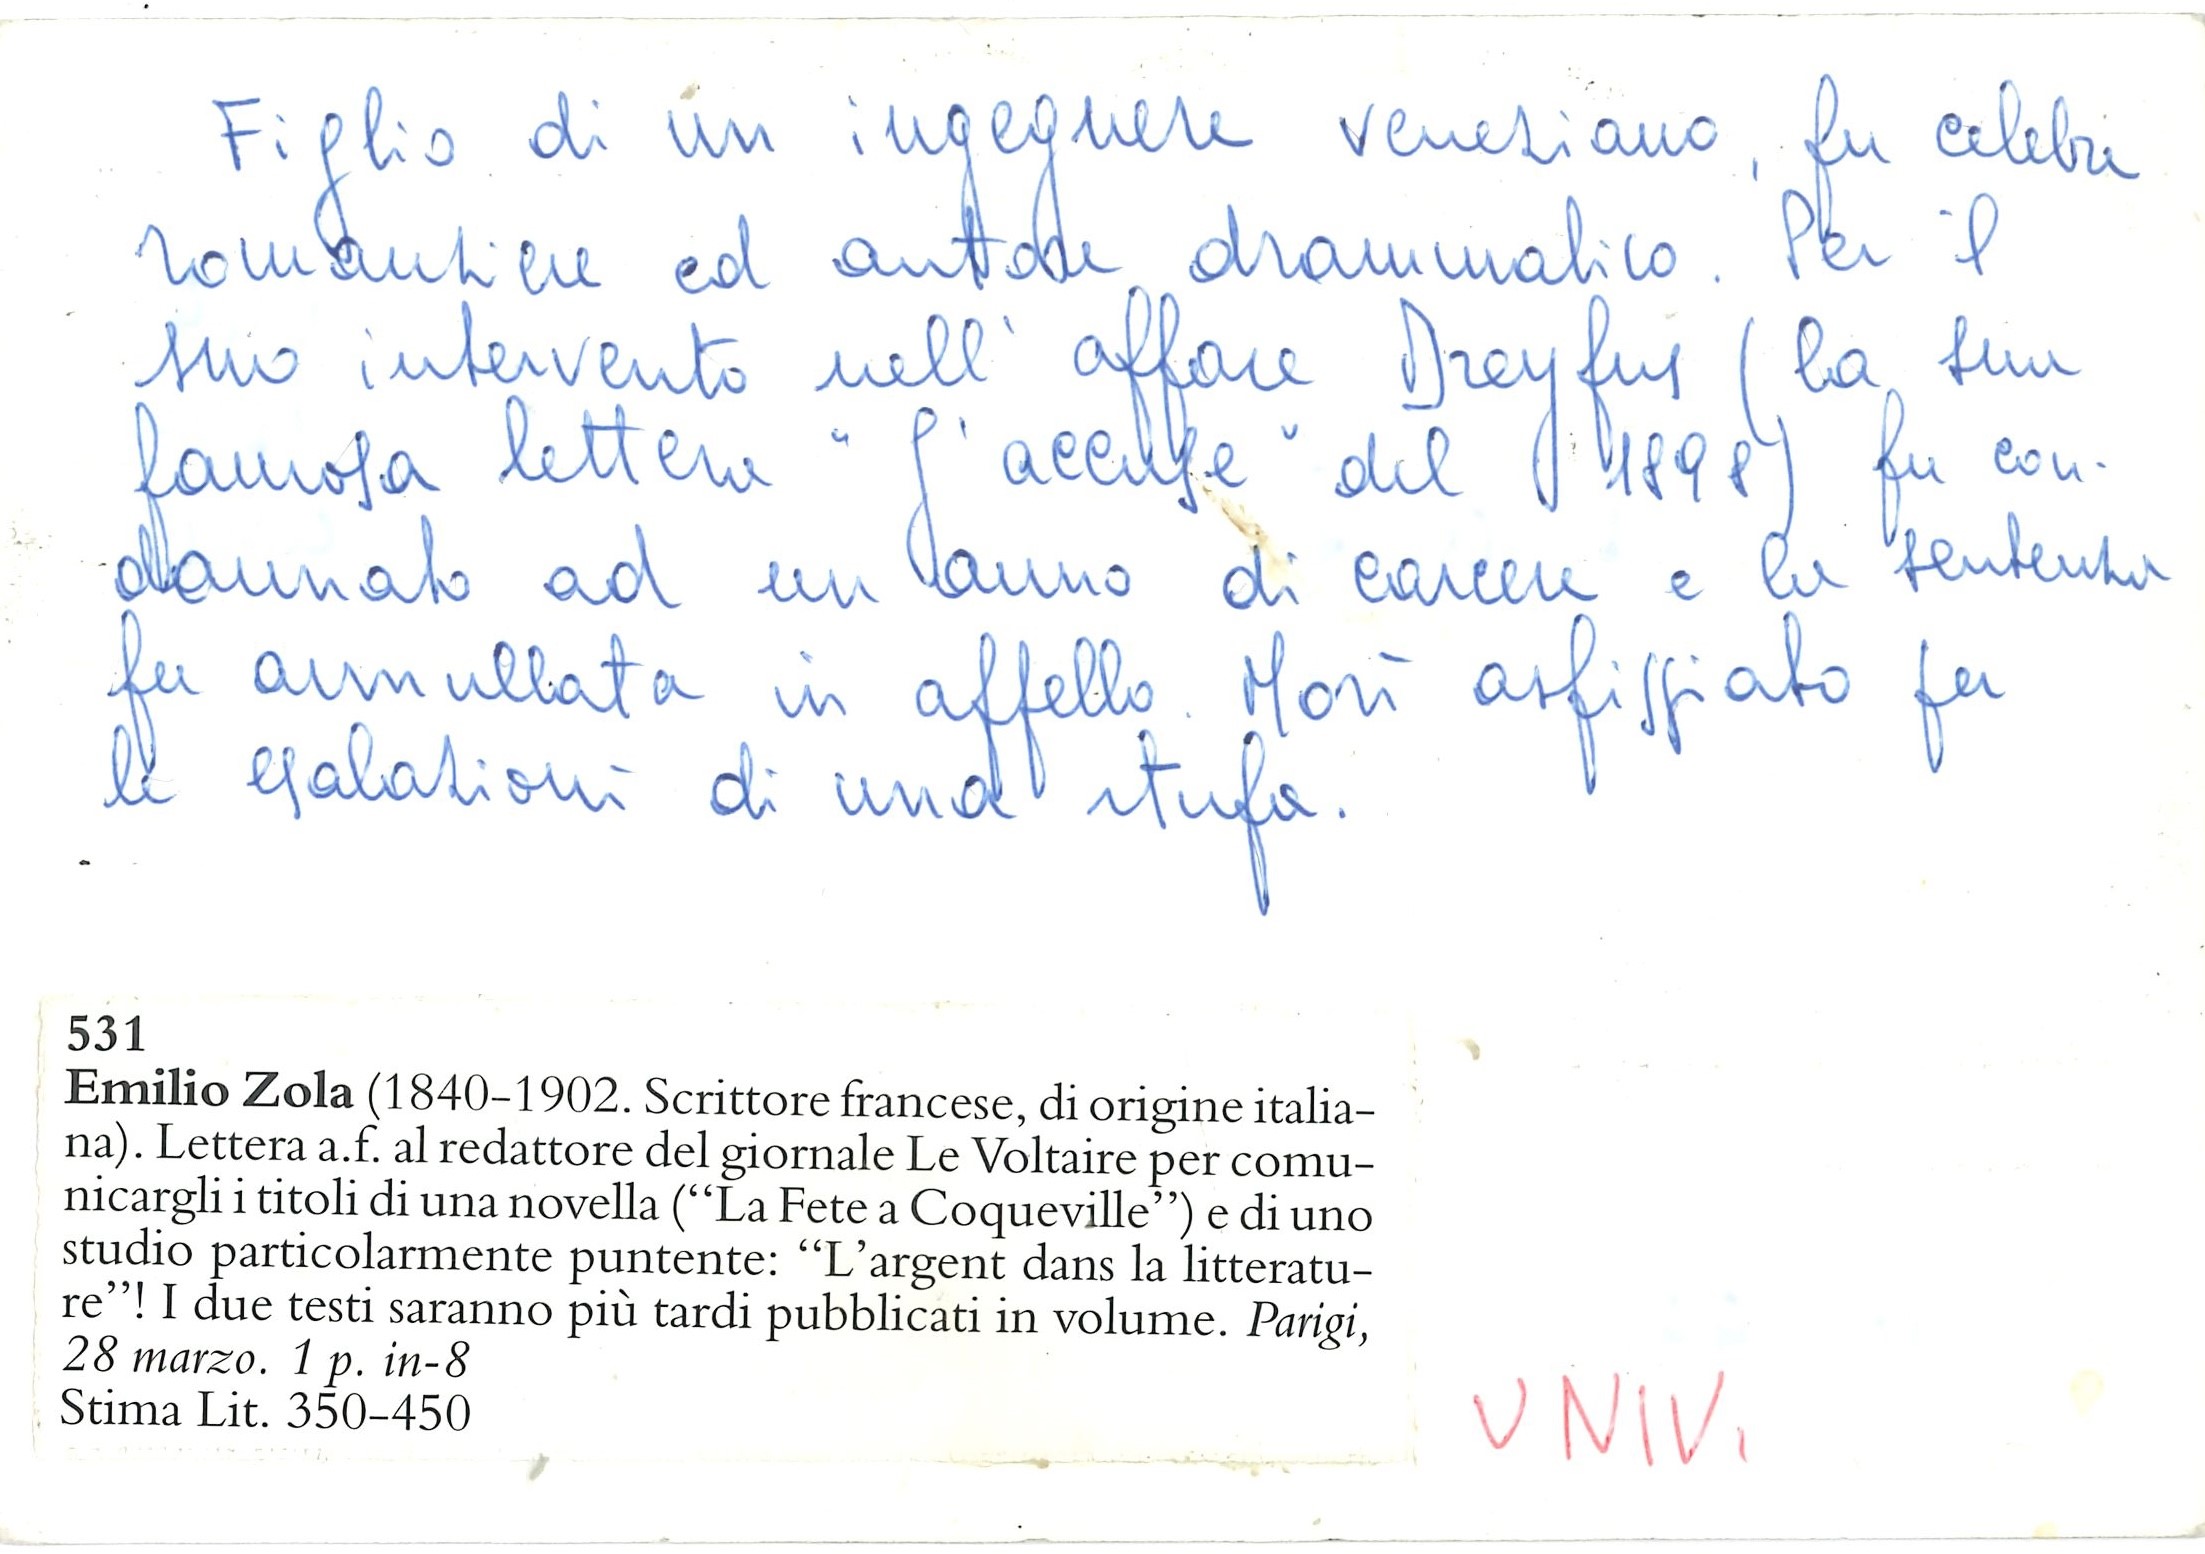 Figlio di un ingegnere veneziano, fu celebre
romanziere ed autore drammatico. Per il
suo intervento nell'affare Dreyfus (la sua
famosa lettera "J'accuse" del 1898) fu con-
dannato ad un anno di carcere e la sentenza
fu annullata in appello. Morì asfissiato per
le esalazioni di una stufa.
531
Emilio Zola (1840-1902. Scrittore francese, di origine italia-
na). Lettera a.f. al redattore del giornale Le Voltaire per comu-
nicargli i titoli di una novella (“La Fete a Coqueville”) e di uno
studio particolarmente puntente: “L’argent dans la litteratu-
re”! I due testi saranno più tardi pubblicati in volume. Parigi,
28 marzo. 1 p. in-8
Stima Lit. 350-450
UNIV.